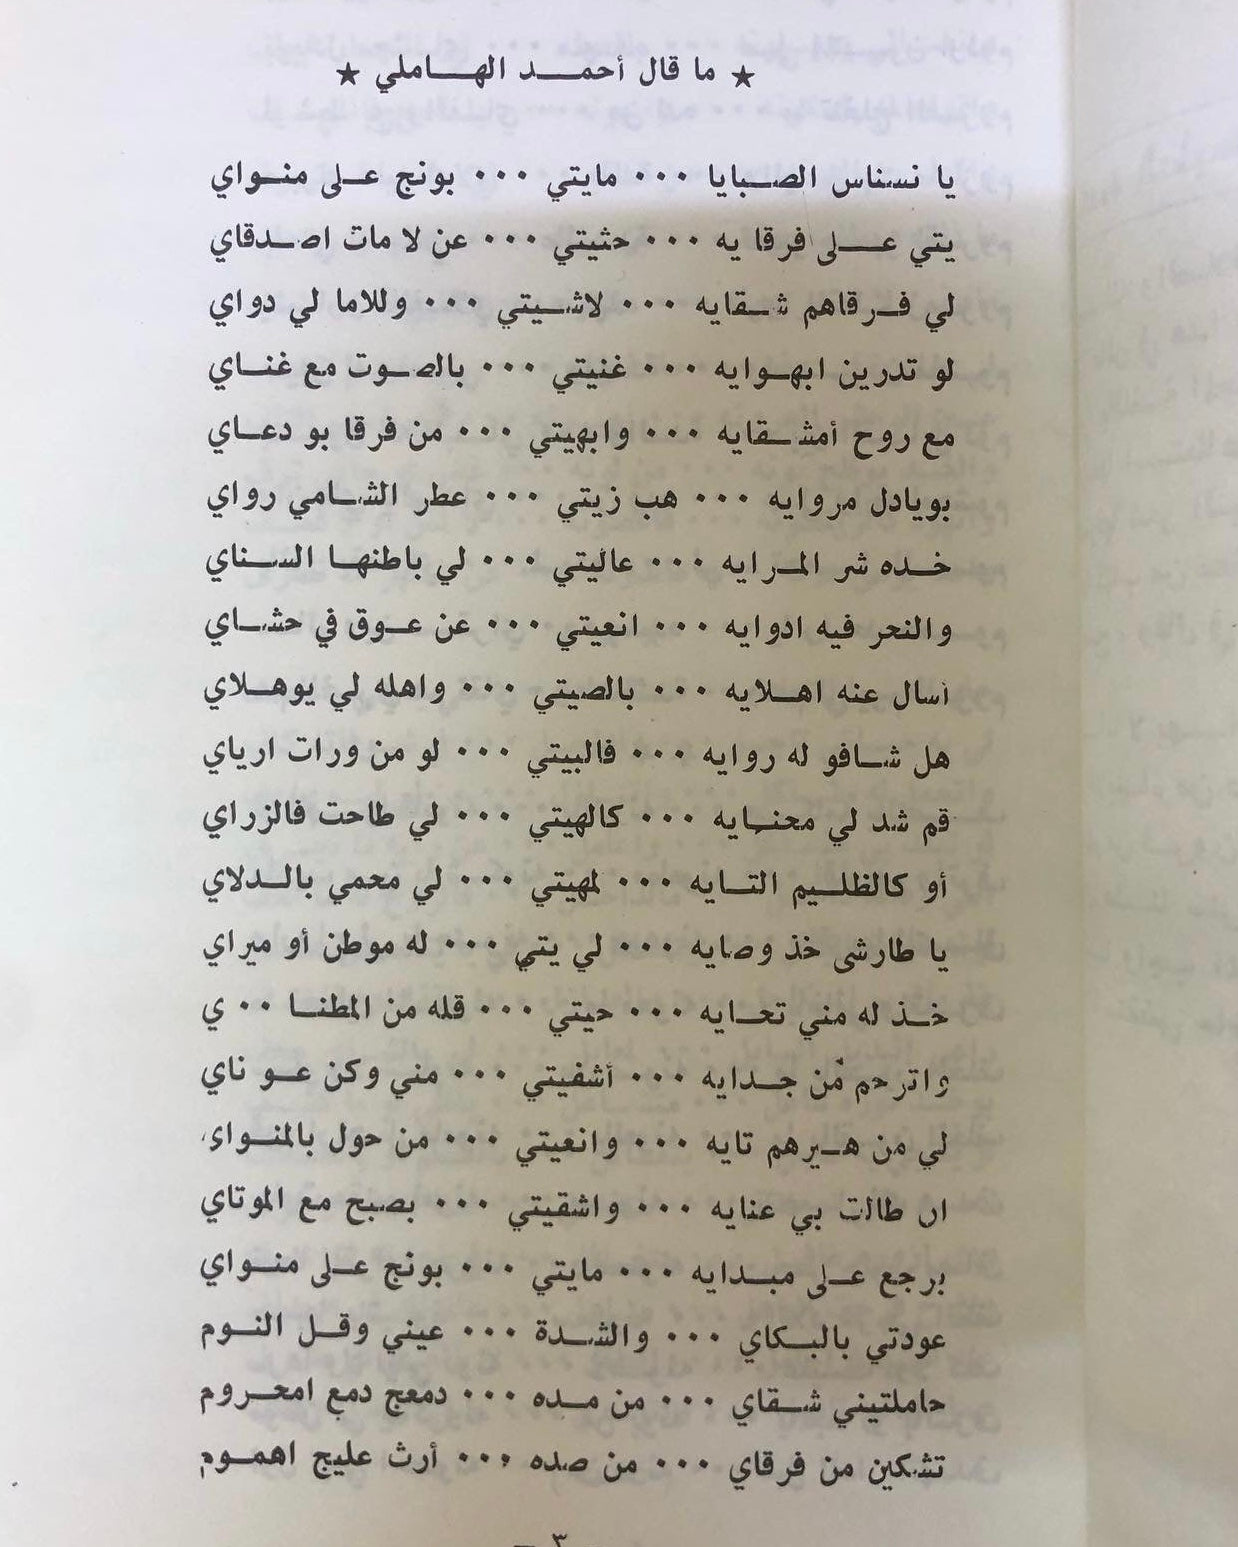 ★ ما قال أحمد الهاملي ★
يا نسناس الصبايا ٠٠٠ مايتي ٠٠٠ بونج على منواي
يتي على فرقا يه ٠٠٠ حثيتي ٠٠٠ عن لا مات اصدقاي
لي فرقاهم شقايه ٠٠٠ لاشيتي ٠٠٠ وللاما لي دواي
لو تدرين ابهوايه ٠٠٠ غنيتي ٠٠٠ بالصوت مع غناي
مع روح أمشقايه ٠٠٠ وابهيتي ٠٠٠ من فرقا بو دعاي
بويادل مروايه ٠٠٠ هب زيتي ٠٠٠ عطر الشامي رواي
خده شر المرايه ٠٠٠ عاليتي ٠٠٠ لي باطنها السناي
والنحر فيه ادوايه ٠٠٠ انعيتي ٠٠٠ عن عوق في حشاي
أسال عنه اهلايه ٠٠٠ بالصيتي ٠٠٠ واهله لي يوهلاي
هل شافو له روايه ٠٠٠ فالبيتي ٠٠٠ لو من ورات ارياي
قم شد لي محنايه ٠٠٠ كالهيتي ٠٠٠ لي طاحت فالزراي
أو كالظليم التايه ٠٠٠ لمهيتي ٠٠٠ لي محمي بالدلاي
يا طارشى خذ وصايه ٠٠٠ لي يتي ٠٠٠ له موطن أو ميراي
خذ له مني تحايه ٠٠٠ حيتي ٠٠٠ قله من المطنا ٠٠ ي
واترحم من جدايه ٠٠٠ أشفيتي ٠٠٠ مني وكن عو ناي
لي من هيرهم تايه ٠٠٠ وانعيتي ٠٠٠ من حول بالمنواي
ان طالت بي عنايه ٠٠٠ واشقيتي ٠٠٠ بصبح مع الموتاي
برجع على مبدايه ٠٠٠ مايتي ٠٠٠ بونج على منواي
عودتي بالبكاي ٠٠٠ والشدة ٠٠٠ عيني وقل النوم
حاملتيني شقاي ٠٠٠ من مده ٠٠٠ دمعج دمع امحروم
تشكين من فرقاي ٠٠٠ من صده ٠٠٠ أرث عليج اهموم
٣ —